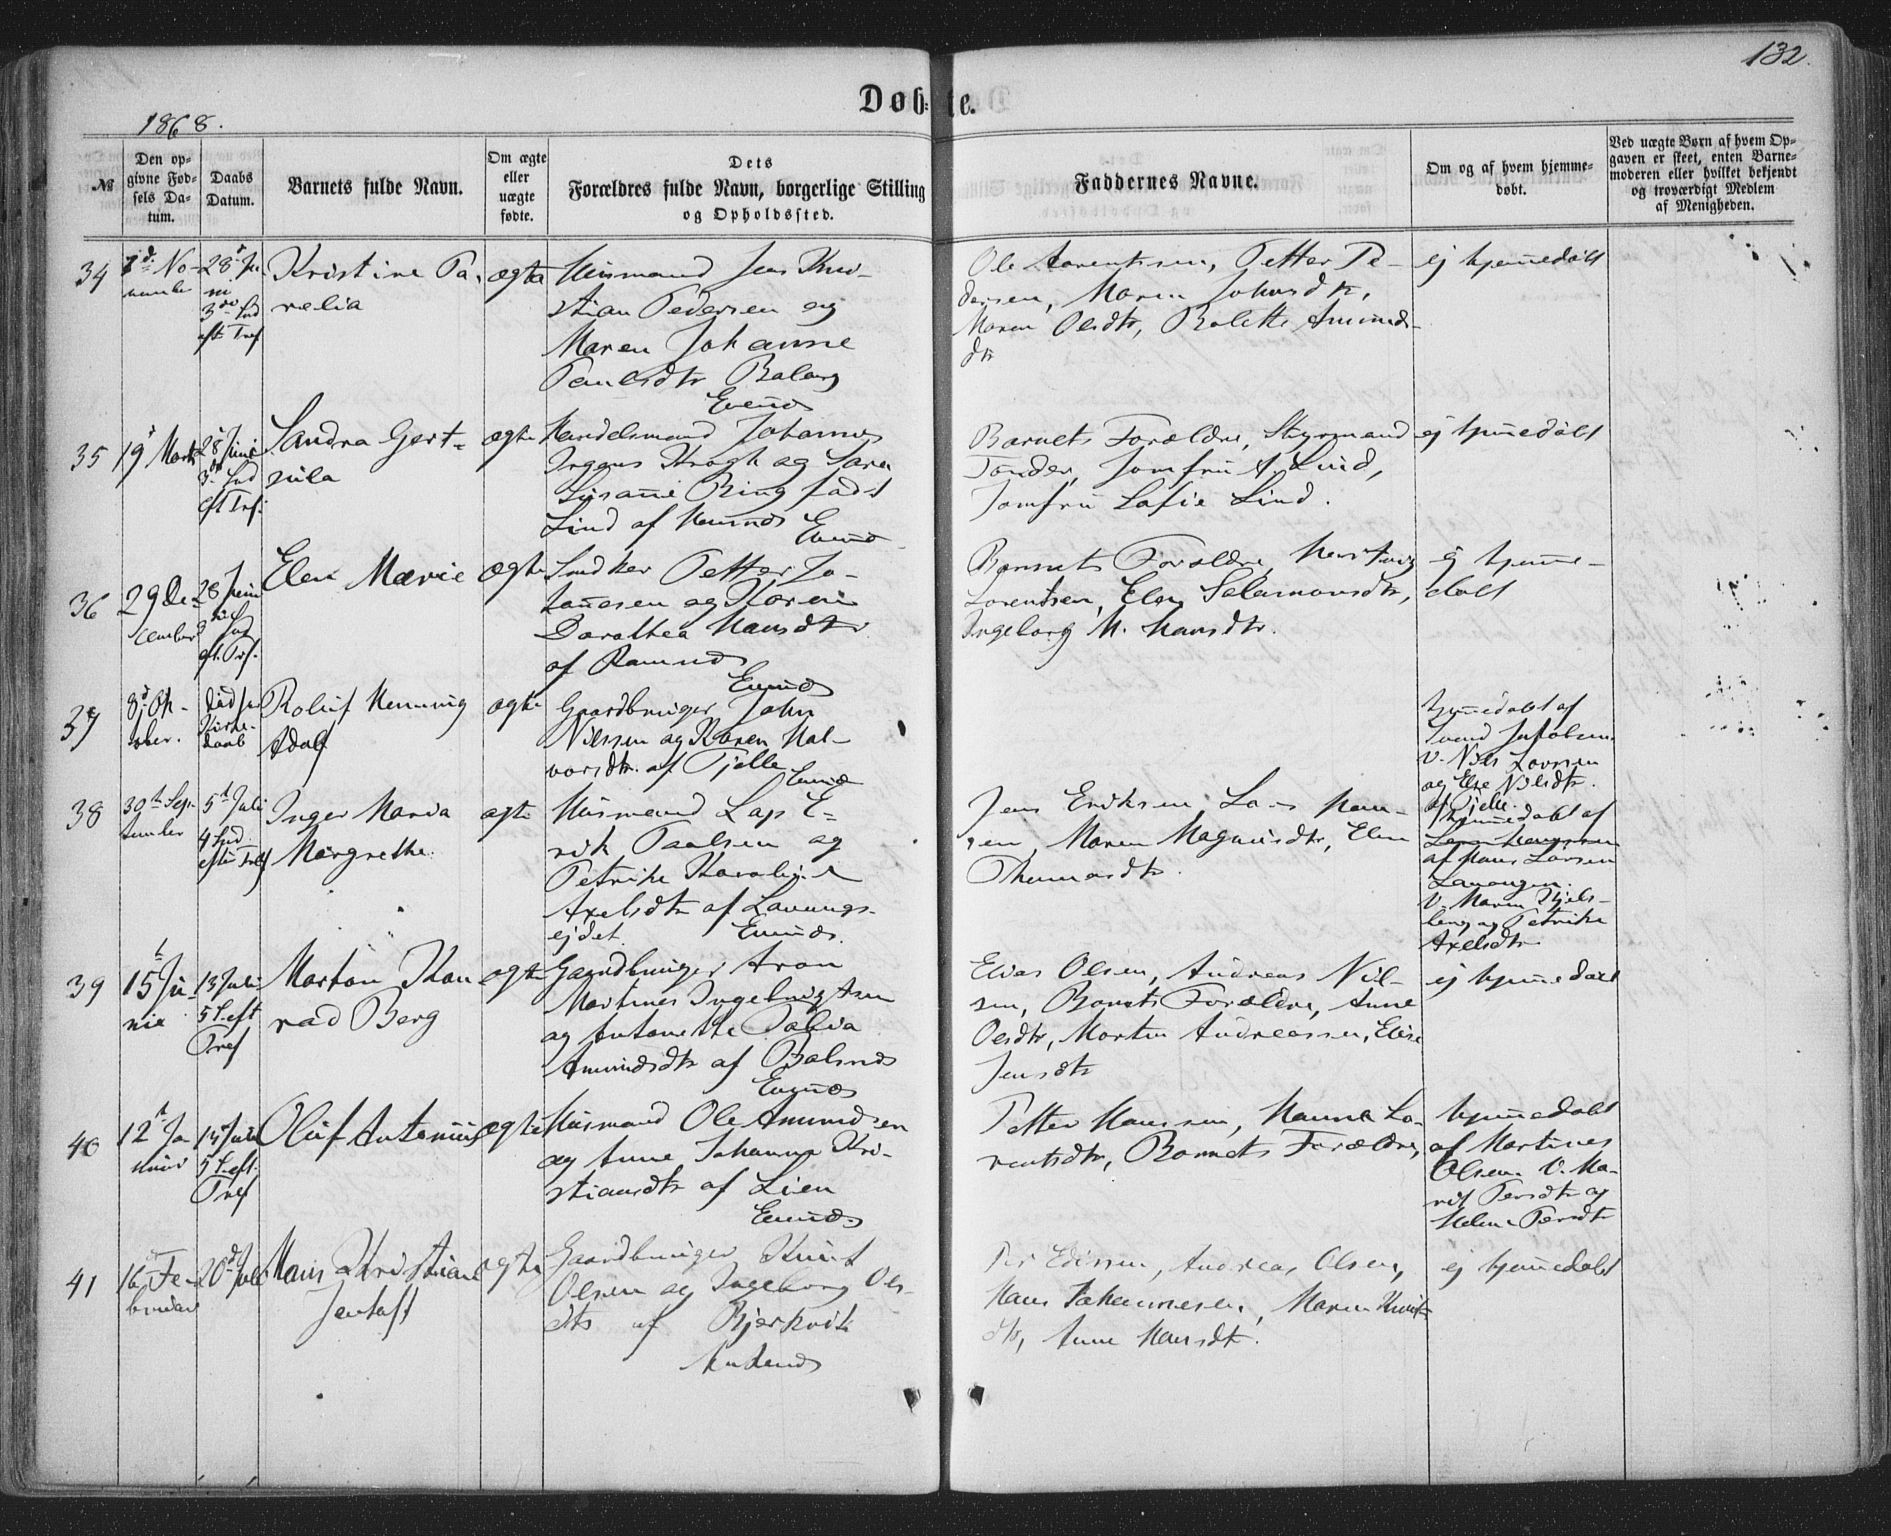 132.
Døb-te.
1868.
№
Den op-
givne Fød-
sels Da-
tum.
Daabs
Datum.
Barnets fulde Navn.
Om ægte
eller
uægte
fødte.
Dets
Forældres fulde Navn, borgerlige Stilling
og Opholdssted.
Faddernes Navne.
Om og af hvem hjemme-
døbt.
Ved uægte Børn af hvem Op-
gaven er skeet, enten Barne-
moderen eller hvilket bekjendt
og troværdigt Medlem
af Menigheden.
34
No-
vember
28 Ju-
ni
3die Snd
eft Tref
Kristine Pa-
relia
ægte
Husmand Jens Kri-
stian Pedersen og
Maren Johanne
Paulsdtr Balang
Evenæs
Ole Lorentsen, Petter Pe-
dersen, Maren Johnsdtr,
Maren Olsdtr, Bolette Amunds-
dtr
ej hjemmedøbt
35
19 Marts
28 Juni
3die Snd
eft Tref.
Sandra Gert-
ægte
Handelsmand Johannes
Krogh og Sara
Susanne Ring født
Lind af
Evenæs
Barnets Forældre, Styrmand
Tønder, Jomfru A. Lind,
Jomfru Lind.
ej hjemmedøbt
36
29 De-
cember
28 Juni
eft. Tref.
Elen Marie
ægte
Petter Jo-
hansen og Karen
Dorothea Hansdtr
af Ramnæs
Evenæs
Barnets Forældre, Hartvig
Lorentsen, Elen Salamonsdtr,
Ingeborg M. Hansdtr.
ej hjemme-
døbt
37
8d Ok-
tober.
Kirke-
daab
Roluf Henning
Adolf
ægte
Gaardbruger John
Nilssen og Karen Hal-
vorsdtr. af Tjelle
Evenæs
hjemmedøbt af
v. Nils
og Else Nilsdtr.
af Tjelle.
38
30te Sep-
tember
5d Juli
4 Snd.
efter Tref
Inger Maria
Margrethe.
ægte
Husmand Lap E-
rik Paulsen og
Petrike
Axelsdtr af Lavangs-
ejdet.
Evenæs.
Jens Eriksen, Lars Han-
sen, Maren Magnusdtr, Elen
Thomasdtr.
hjemmedøbt af
af Hans Larsen
Lavangen.
v. Maren
og Petrike
Axelsdtr
39
15 Ju-
nie
13 Juli
5 S. eft
Tref
Morton Kon
rad Berg
ægte
Gaardbruger Aron
Martines Ingebrigtsen
og Antonette
Amundsdtr af Balsnes
Evenæs
Elias Olsen, Andreas Nil-
sen, Barnets Forældre, Anne
Olsdtr, Morten Andreassen, Elise
Jensdtr
ej hjemmedøbt
40
12 Ja-
nuar
Juli
5 S. eft.
Tref
Oluf Antonius
ægte
Husmand Ole Amundsen
og Anne Johanna Kri-
stiansdtr af Lien
Evenæs
Petter Hansen, Hanna Lo-
rentsdtr, Barnets Forældre,
hjemmedøbt
af Martines
Olsen v. Ma-
rit Persdtr og
Helene Persdtr
41
16 Fe-
bruar
20d Juli
Hans Kristian
Jentoft
ægte
Gaardbruger Knut
Olsen og Ingeborg Ols-
dtr af Bjerkvik
Ankenæs
Per Edissen, Andreas Olsen,
Hans Johannesen, Maren Knuts-
dtr, Anne Hansdtr.
ej hjemmedøbt